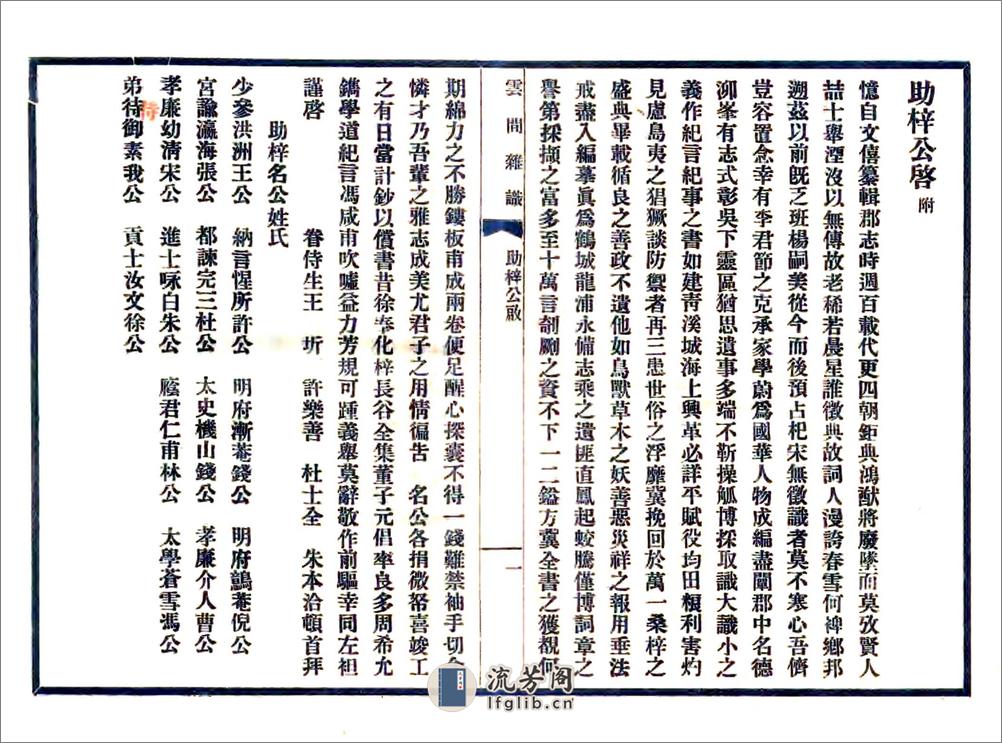 助梓公啓 附
憶自文僖纂輯郡志時週百載代更四朝鉅典鴻猷將廢墜而莫攷賢人
喆士舉湮沒以無傳故老稀若晨星誰徵典故詞人漫誇春雪何裨鄉邦
遡茲以前旣乏班楊嗣美從今而後預占杞宋無徵識者莫不寒心吾儕
豈容置念幸有李君節之克承家學蔚爲國華人物成編盡闡郡中名德
泖峯有志式彰吳下靈區猶思遺事多端不靳操觚博採取識大識小之
義作紀言紀事之書如建靑溪城海上興革必詳平賦役均田糧利害灼
見慮島夷之猖獗談防禦者再三患世俗之浮靡冀挽回於萬一桑梓之
盛典畢載循良之善政不遺他如鳥獸草木之妖善惡災祥之報用垂法
戒盡入編摹眞爲鶴城龍浦永備志乘之遺匪直鳳起蛟騰僅博詞章之
譽第採擷之富多至十萬言剞劂之資不下一二鎰方冀全書之獲覩何
雲間雜識
助梓公啟
一
期綿力之不勝鏤板甫成兩卷便足醒心探囊不得一錢難禁袖手切念
憐才乃吾輩之雅志成美尤君子之用情徧告 名公各捐微帑喜竣工
之有日當計鈔以償書昔徐奉化梓長谷全集董子元倡率良多周希允
鐫學道紀言馮咸甫吹噓益力芳規可踵義舉莫辭敬作前驅幸同左袒
謹啓 眷侍生王 圻 許樂善 杜士全 朱本洽頓首拜
助梓名公姓氏
少參洪洲王公 納言惺所許公 明府漸菴錢公 明府鷧菴倪公
宮諭瀛海張公 都諫完三杜公 太史機山錢公 孝廉介人曹公
孝廉幼淸宋公 進士咏白朱公 廕君仁甫林公 太學蒼雪馮公
弟待御素我公 貢士汝文徐公
侍
流芳阁
lfglib.cn